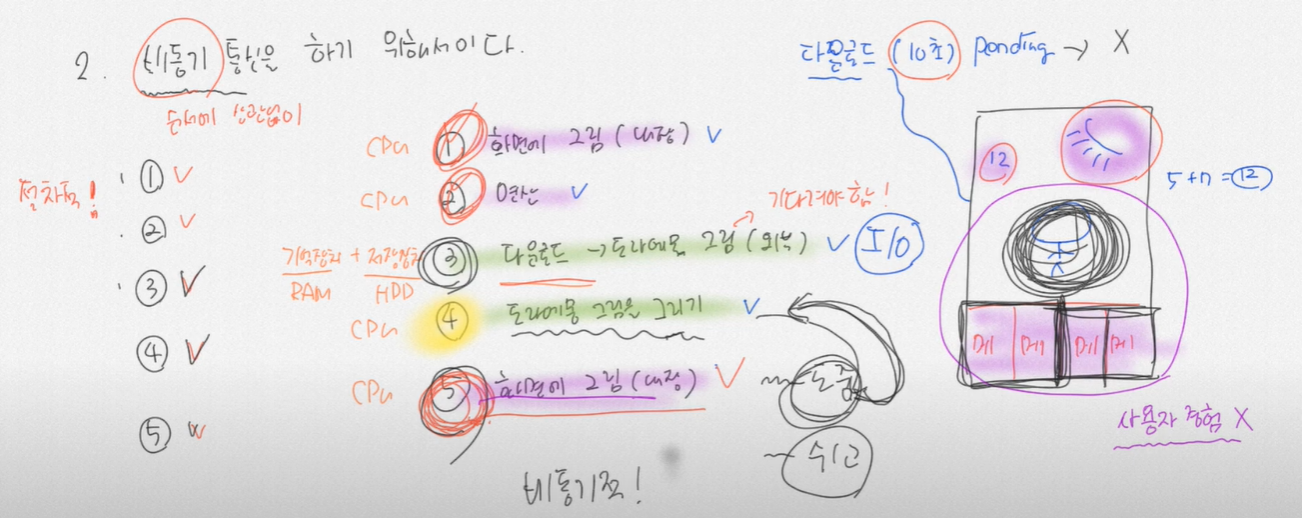 2. 비동기 통신을 하기 위해서이다.
순서에 상관없이
다운로드 (10초) pending → X
절차적!
① ② ③ ④ ⑤
CPU ① 화면에 그림 (내장)
CPU ② 연산
기다려야 함!
기억장치 + 저장장치 ③ 다운로드 → 도라에몽 그림 (외부) I/O
RAM HDD
CPU ④ 도라에몽 그림을 그리기
CPU ⑤ 화면에 그림 (내장)
수고
비동기적!
12
5 + 7 = 12
메뉴 메뉴 메뉴 메뉴
사용자 경험 X